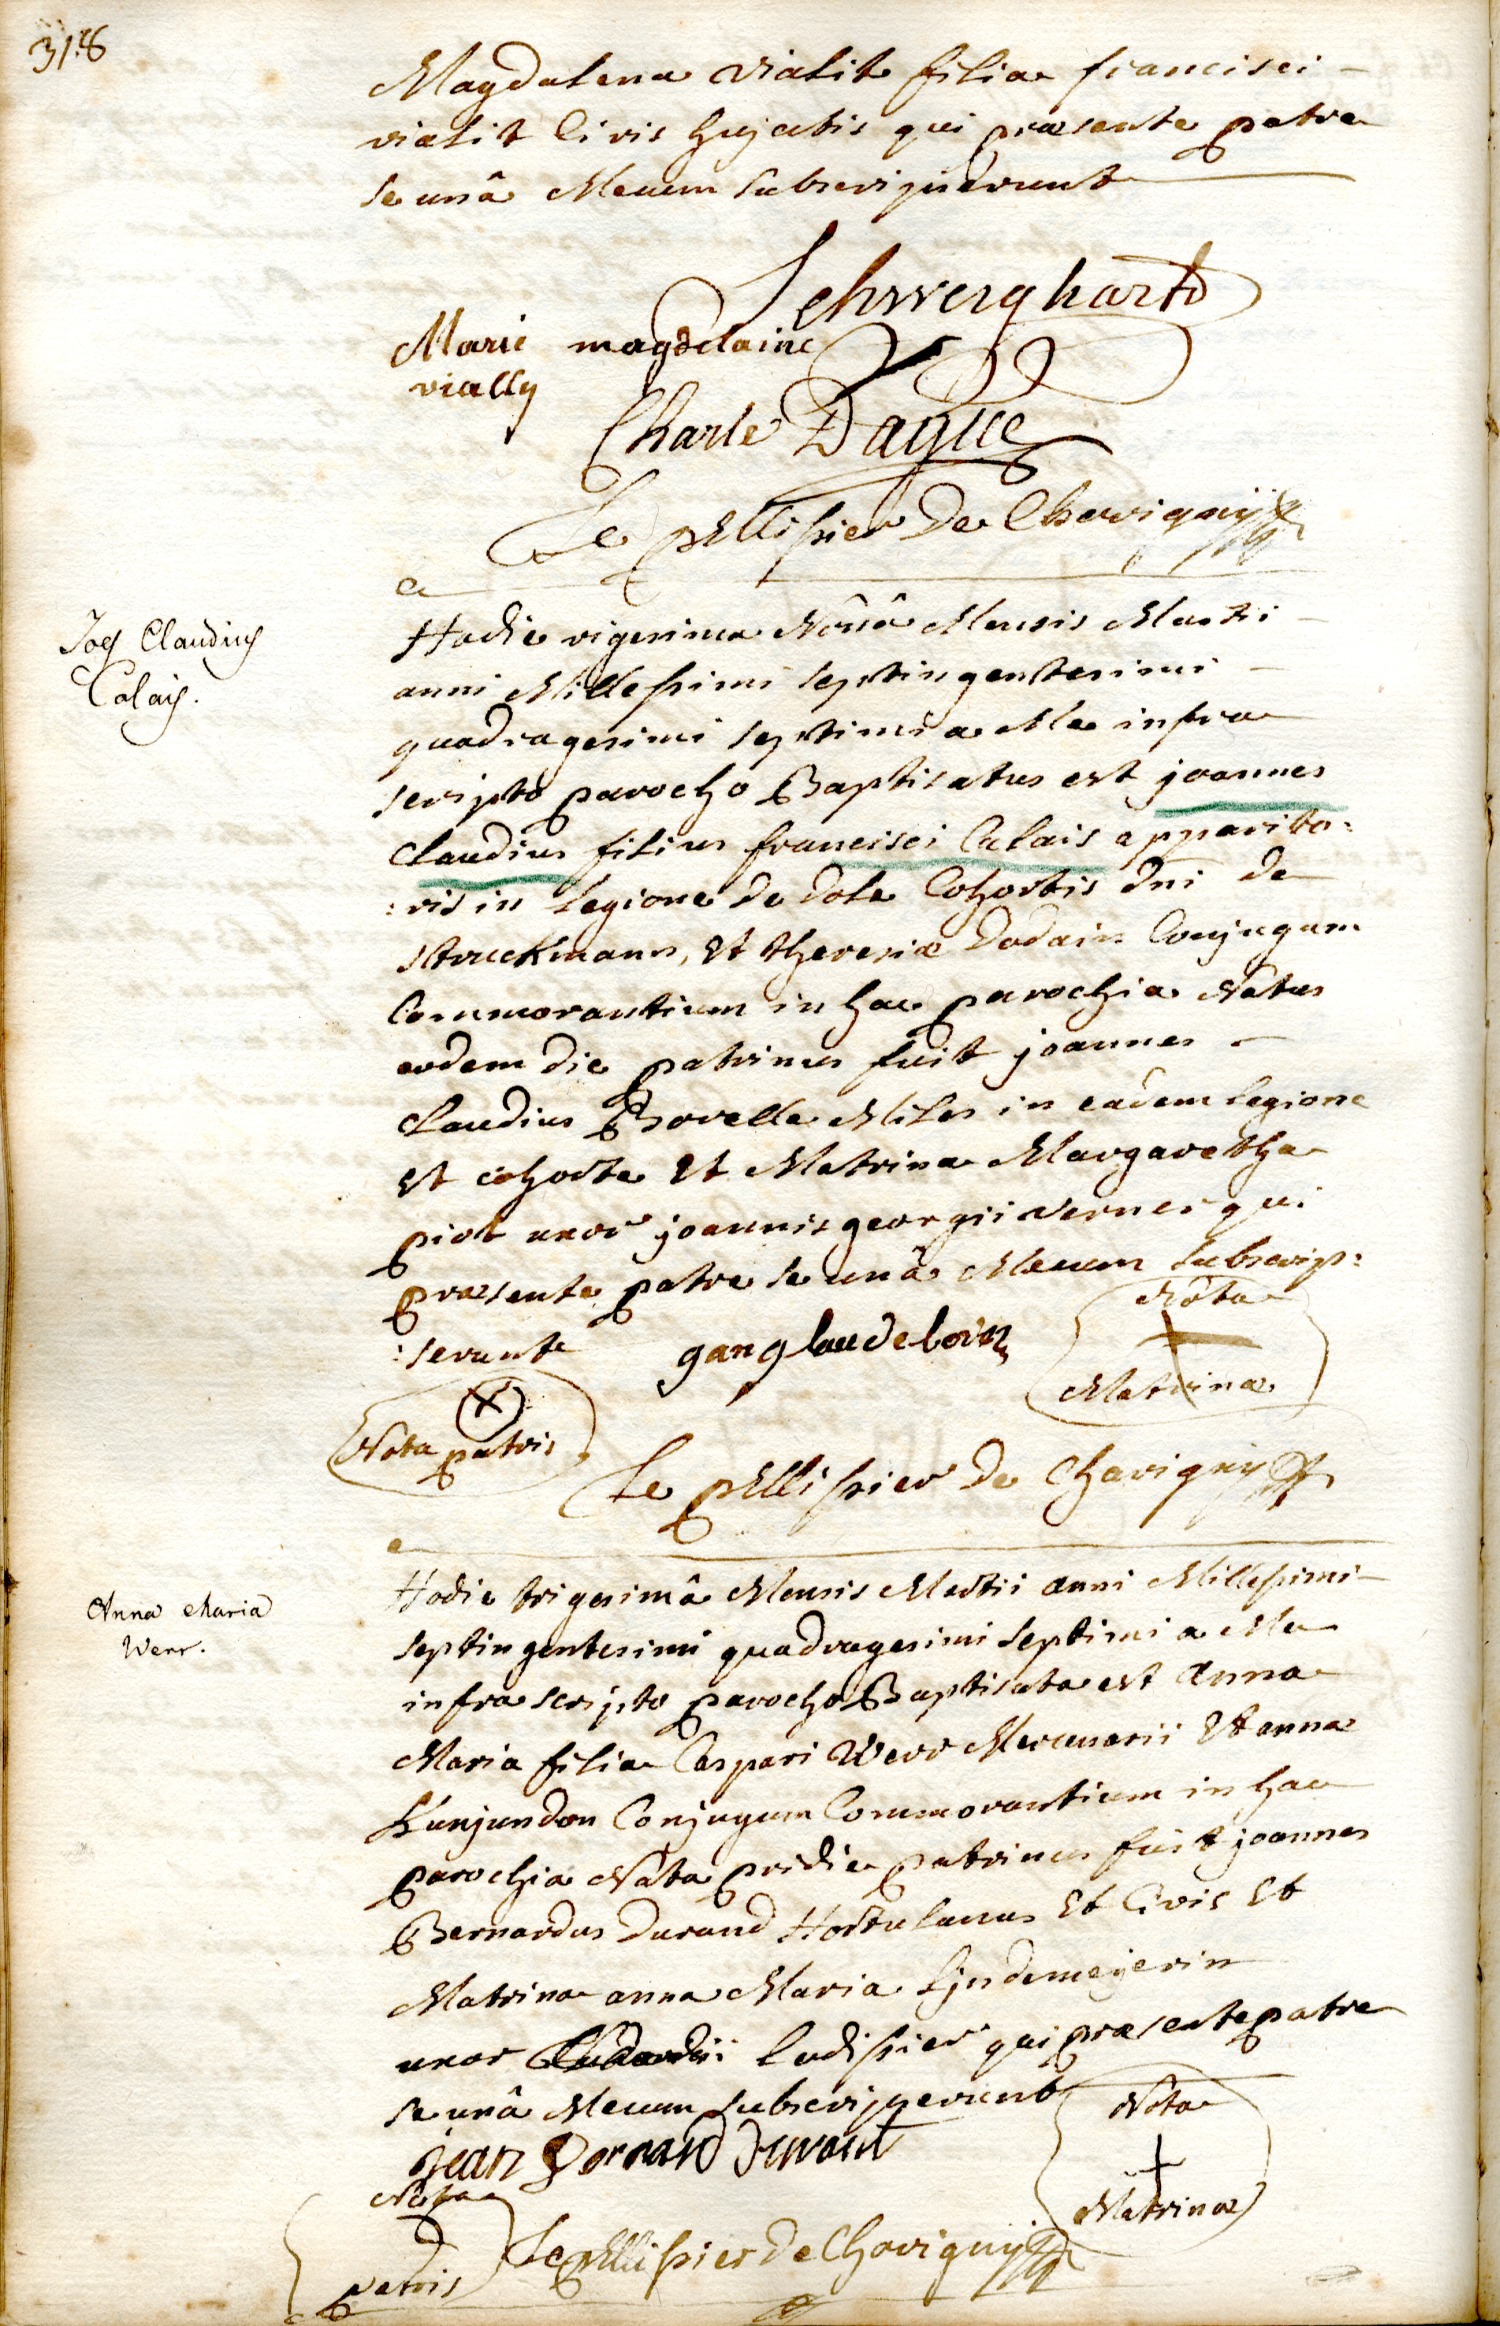 318
Magdalena vialit filia francisci -
vialit Civis hujatis qui præsente patre
se unâ Mecum subscripserunt
Schweighart
Marie magdelaine
vially
Charle Dague
Le pellissier De Chavigny
Joes Claudius
Calais.
Hodie vigesima Nonâ Mensis Martii -
anni Millesimi septingentesimi -
quadragesimi septimi a Me infra
scripto parocho Baptisatus est joannes
Claudius filius francisci Calais apparito:
:ris in Legione de Dole Cohortis Dni de
struckmann, Et theresiæ Dodain Conjugum
Commorantium in hac parochia Natus
eodem die patrinus fuit joannes -
Claudius Bovelle Miles in eadem legione
Et cohorte Et Matrina Margaretha
piot uxor joannis georgii verner qui
præsente patre se unâ Mecum subscrip:
:serunt
ganglaudeboin
Nota
Matrinæ
Nota patris
Le pellissier De Chavigny
Anna Maria
Werr.
Hodie trigesimâ Mensis Martii anni Millesimi -
septingentesimi quadragesimi septimi a Me
infra scripto parocho Baptisata est anna
Maria filia Caspari Werr Mercenarii Et anna
Kunjundon Conjugum Commorantium in hac
parochia Nata pridie patrinus fuit joannes
Bernardus Durand Hortulanus Et Civis Et
Matrina anna Maria Lyndemeyerin
uxor Ludissier qui præsente patre
se unâ Mecum subscripserunt
jean Bernard Durant
Nota
Matrinæ
Nota
patris
Le pellissier De Chavigny